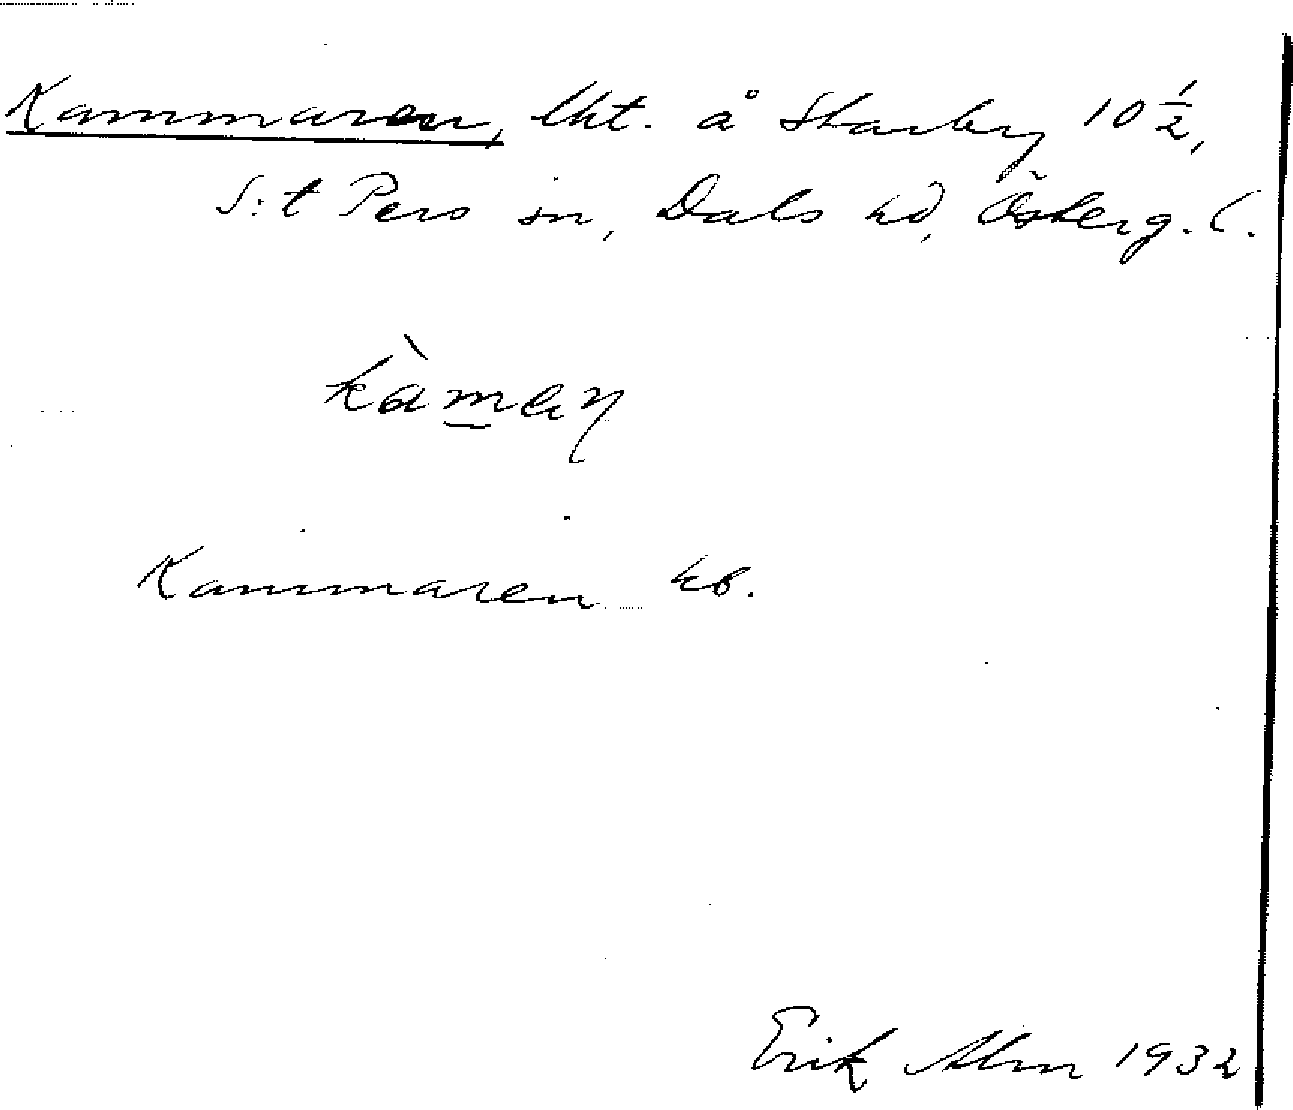 Kammaren, lht. å Starby 10 1/2,
S:t Pers sn, Dals hd, Österg. l.
kàman
Kammaren kb.
Erik Alm 1932